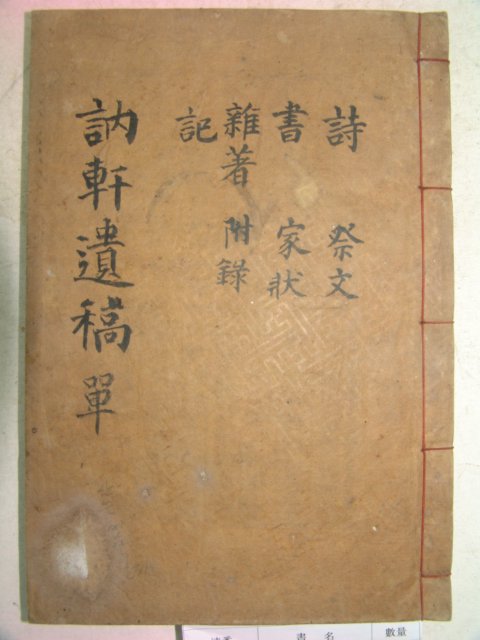 詩 祭文
書 家狀
雜著 附錄
記
訥軒遺稿 單
書名
數量